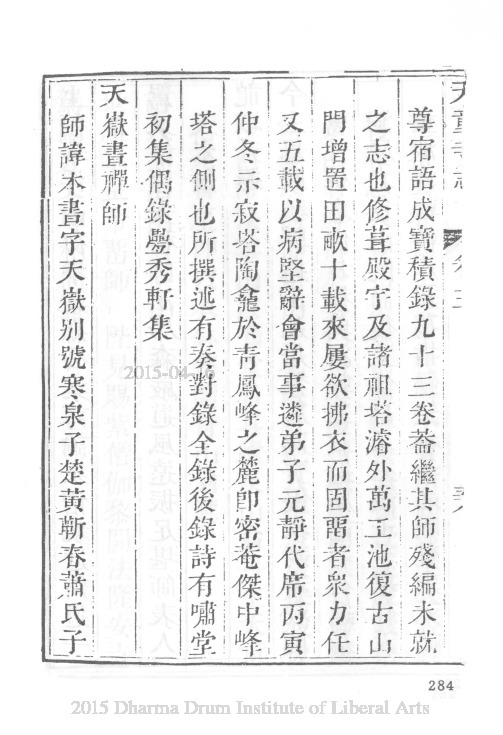 尊宿語成寶積錄九十三卷葢繼其師殘編未就
之志也修葺殿宇及諸祖塔濬外萬工池復古山
門增置田畝十載來屢欲拂衣而固畱者衆力任
又五載以病堅辭會當事遴弟子元靜代席丙寅
仲冬示寂塔陶龕於青鳳峰之麓卽密菴傑中峰
塔之側也所撰述有奏對錄全錄後錄詩有嘯堂
初集偶錄疉秀軒集
天嶽晝禪師
師諱本晝字天嶽別號寒泉子楚黃蘄春蕭氏子
2015-04-
284
2015 Dharma Drum Institute of Liberal Arts